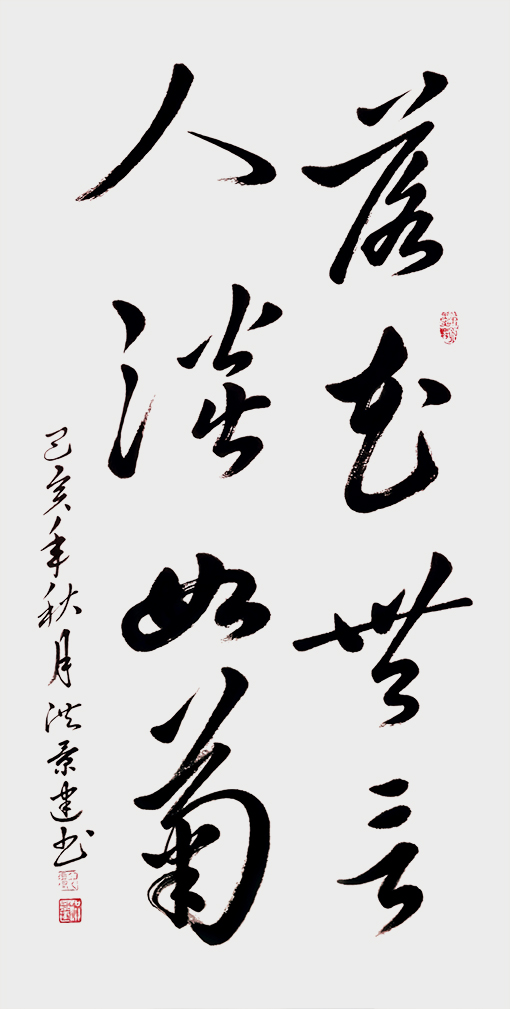 落花無言
人淡如菊
己亥年秋月洪景建书